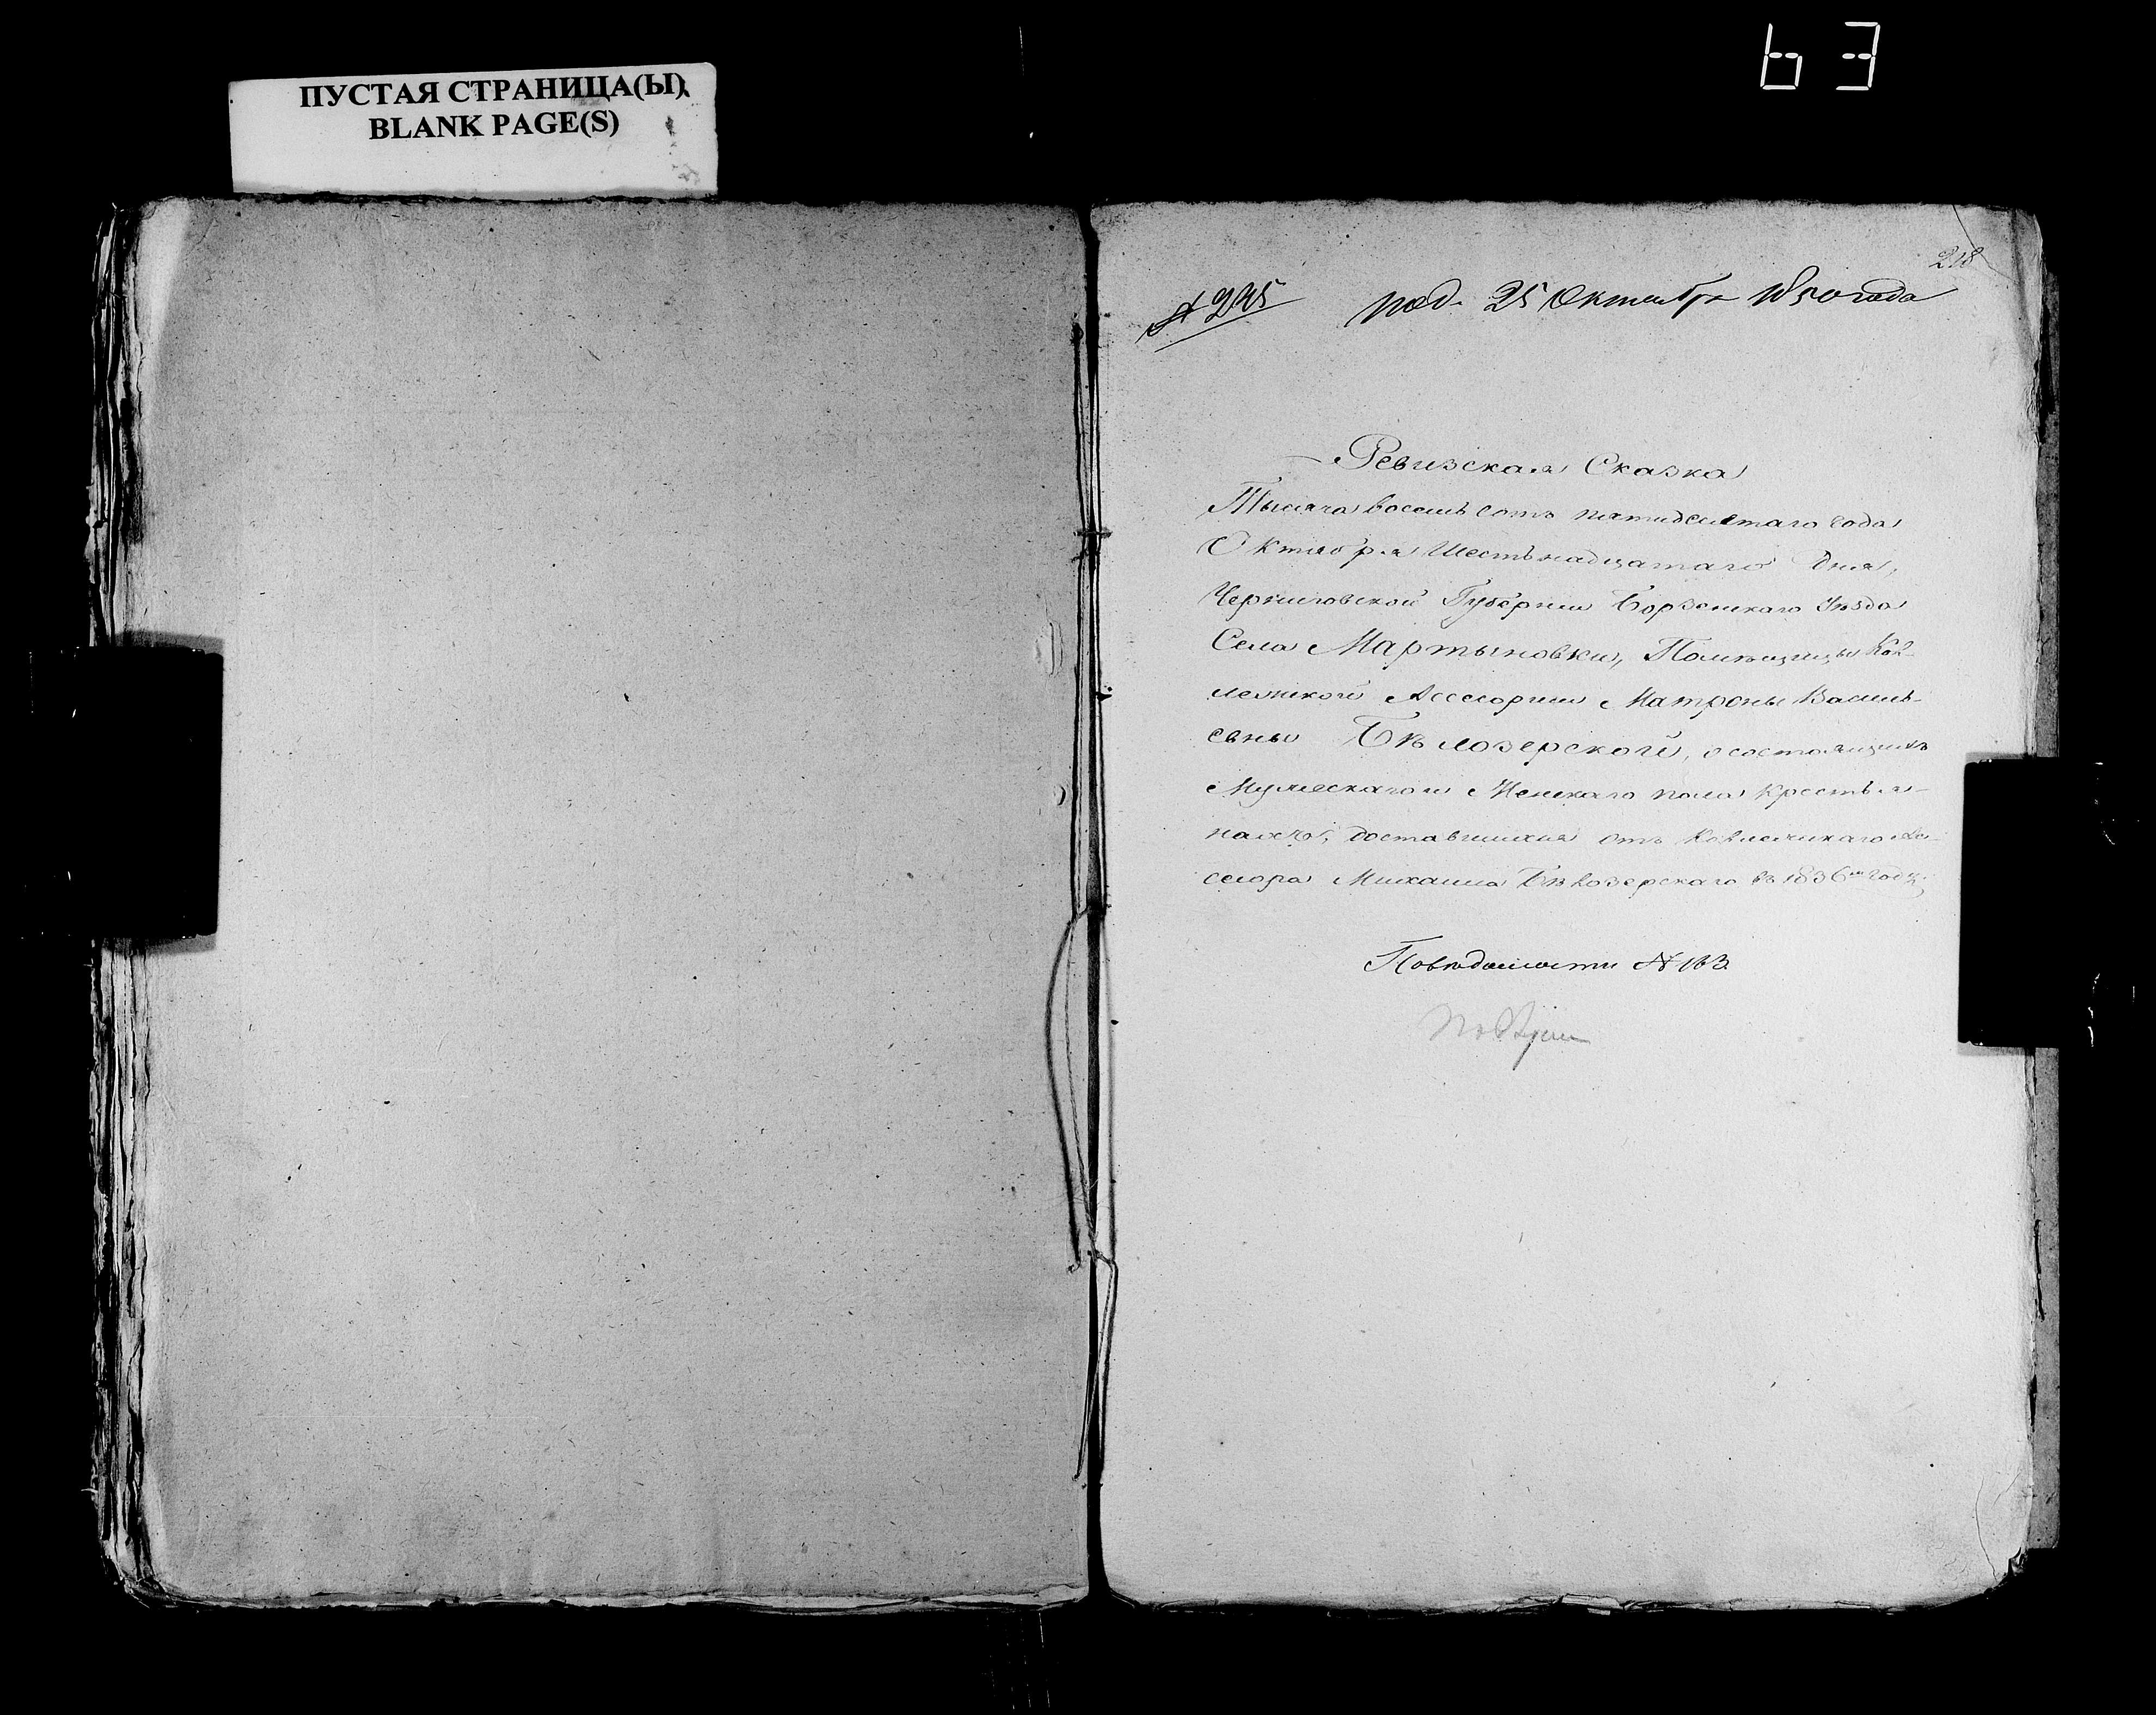 63
ПУСТАЯ СТРАНИЦА(Ы)
BLANK PAGE(S)
218
№ 235 под. 25 Октября 1850 года
Ревизская Сказка
Тысяча восемь сотъ пятидесятаго года
Октября Шестьнадцатаго дня,
Черниговской Губерніи Борзенскаго Уѣзда
Села Мартыновки, Помѣщицы Кол-
лежской Асессорши Матроны Василь-
евны Бѣлозерской, о состоящихъ
Мужескаго и Женскаго пола крестья-
нахъ, доставшихся отъ Коллежскаго Ас-
сесора Михаила Бѣлозерскаго въ 1836мъ году
По вѣдомости № 163